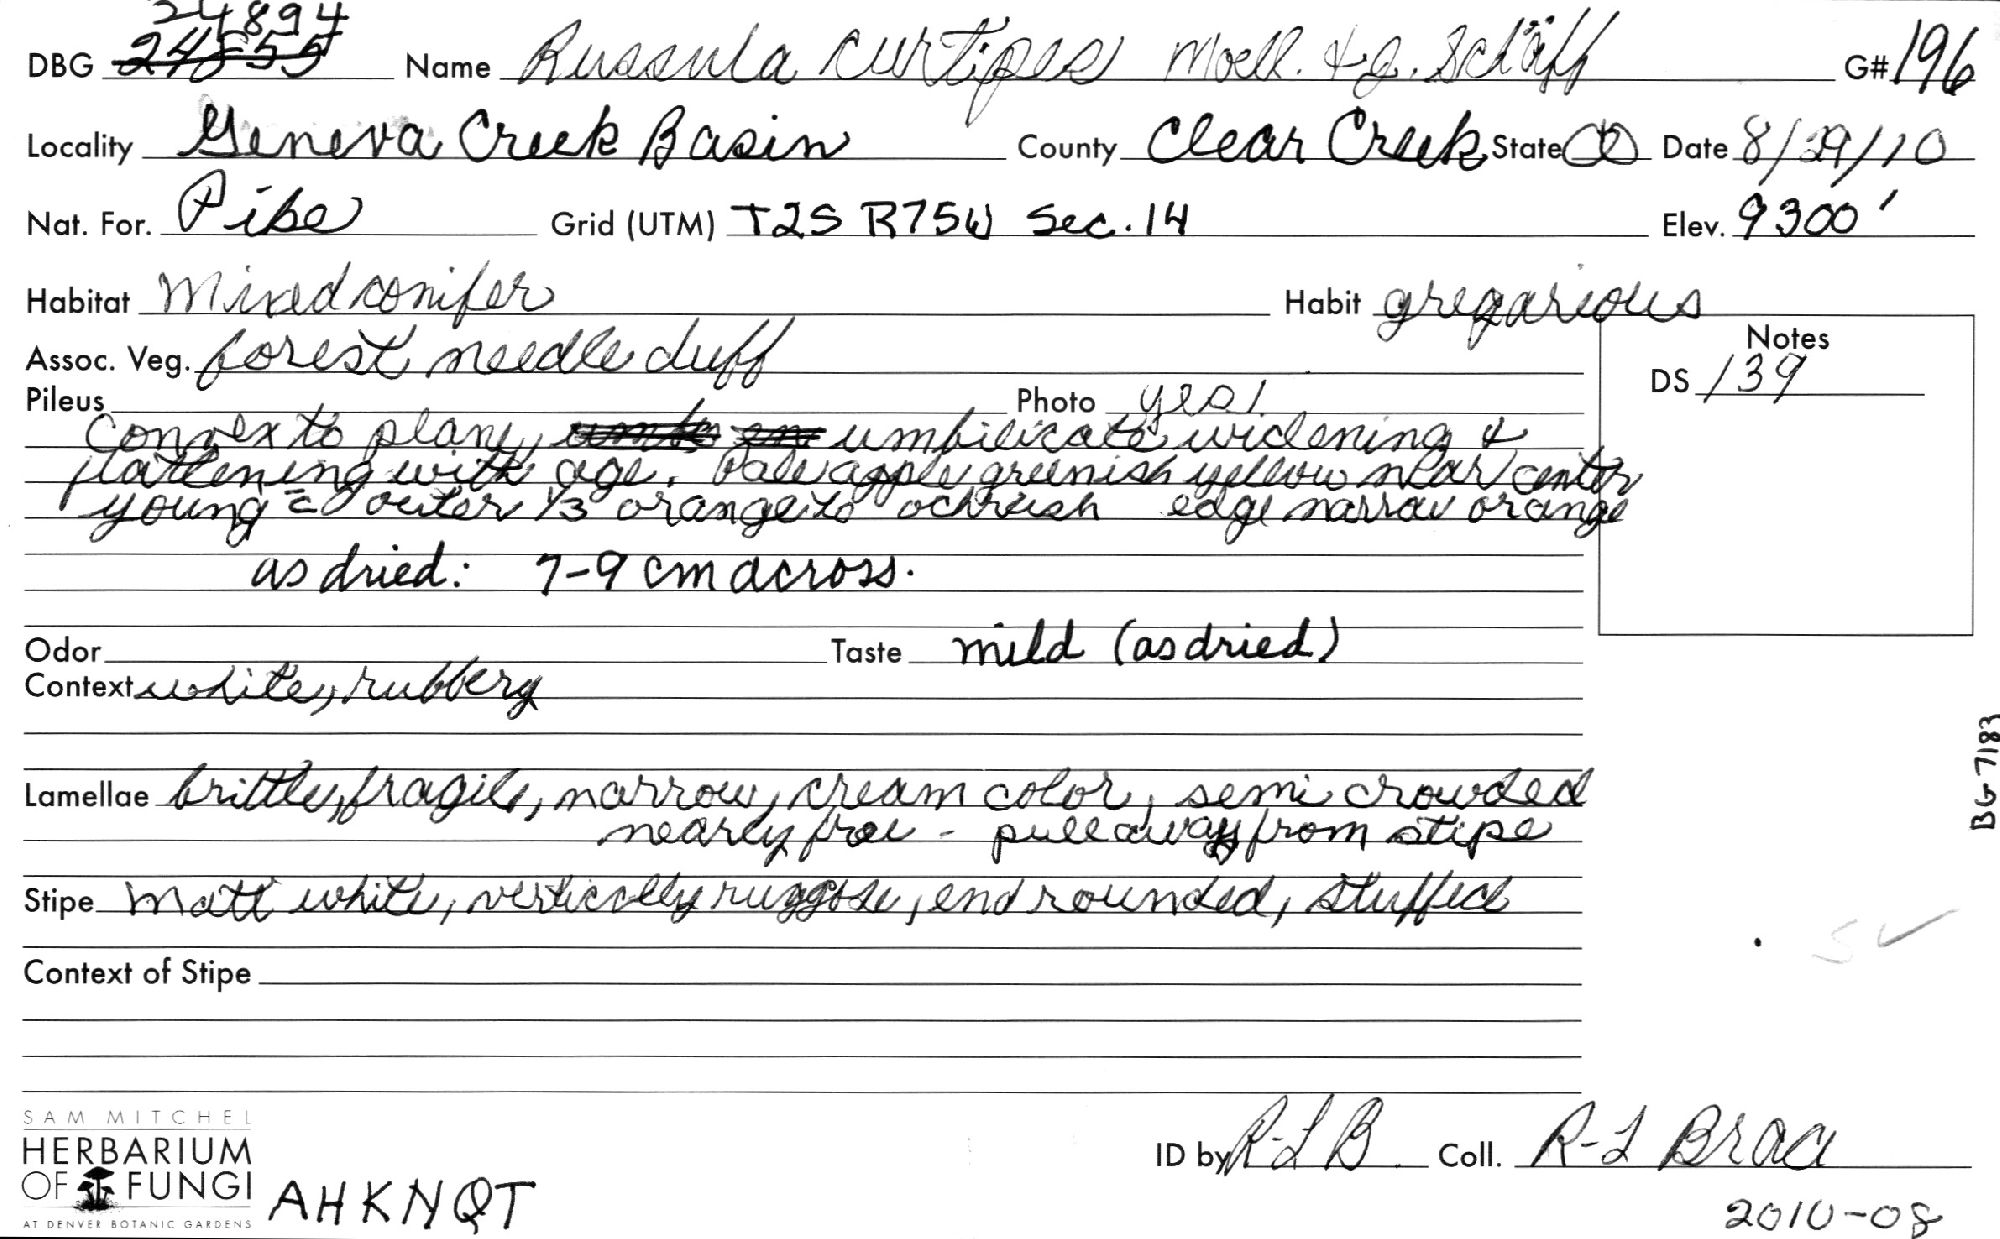 24894
DBG 24555 Name Russula curtipes Moell. & J. Schäff G# 196
Locality Geneva Creek Basin County Clear Creek State CO Date 8/29/10
Nat. For. Pike Grid (UTM) T2S R75W Sec. 14 Elev. 9300'
Habitat Mixed conifer Habit gregarious
Assoc. Veg. forest needle duff Notes
DS 139
Pileus Photo yes!
Convex to plane, umbilicate widening &
flattening with age. Pale apple greenish yellow near center
young = outer 1/3 orange to ochreish edge narrow orange
as dried: 7-9 cm across.
Odor Taste mild (as dried)
Context white, rubbery
BG 7183
Lamellae brittle, fragile, narrow, cream color, semi crowded
nearly free - pull away from stipe
Stipe Matt white, vertically ruggose, end rounded, stuffed
Context of Stipe
SAM MITCHEL
HERBARIUM
OF FUNGI
AT DENVER BOTANIC GARDENS
AHKNQT
ID by R-L B Coll. R-L Brace
2010-08